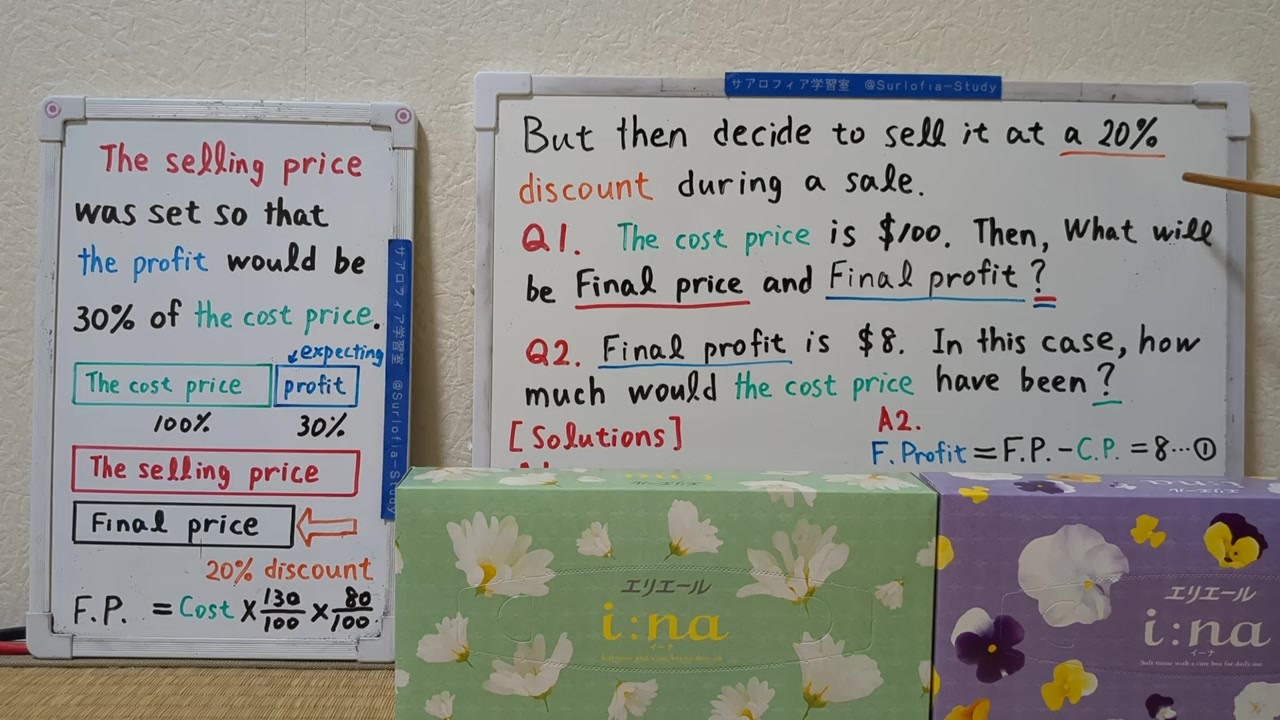 The selling price
was set so that
the profit would be
30% of the cost price.
↙expecting
The cost price profit
100% 30%
The selling price
Final price
20% discount
F.P. = Cost × 130/100 × 80/100
サアロフィア学習室 @Surlofia-Study
サアロフィア学習室 @Surlofia-Study
But then decide to sell it at a 20%
discount during a sale.
Q1. The cost price is $100. Then, What will
be Final price and Final profit?
Q2. Final profit is $8. In this case, how
much would the cost price have been?
[Solutions]
A2.
F. Profit = F.P. - C.P. = 8 … ①
エリエール
i:na
イーナ
エリエール
i:na
イーナ
Soft tissue with a cute box for daily use.